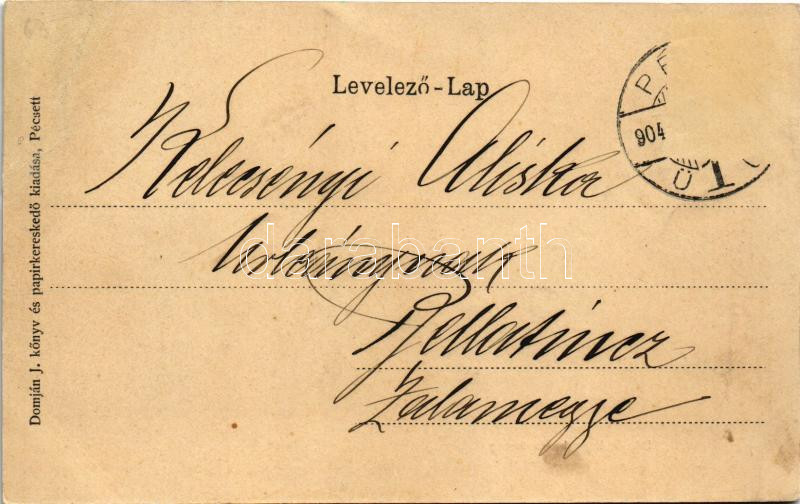 Levelező-Lap
Kelecsényi Aliska
Urleánynak
Bellatincz
Zalamegye
Domján J. könyv és papirkereskedő kiadása, Pécsett
PÉ
904
Ü 1
darabanth